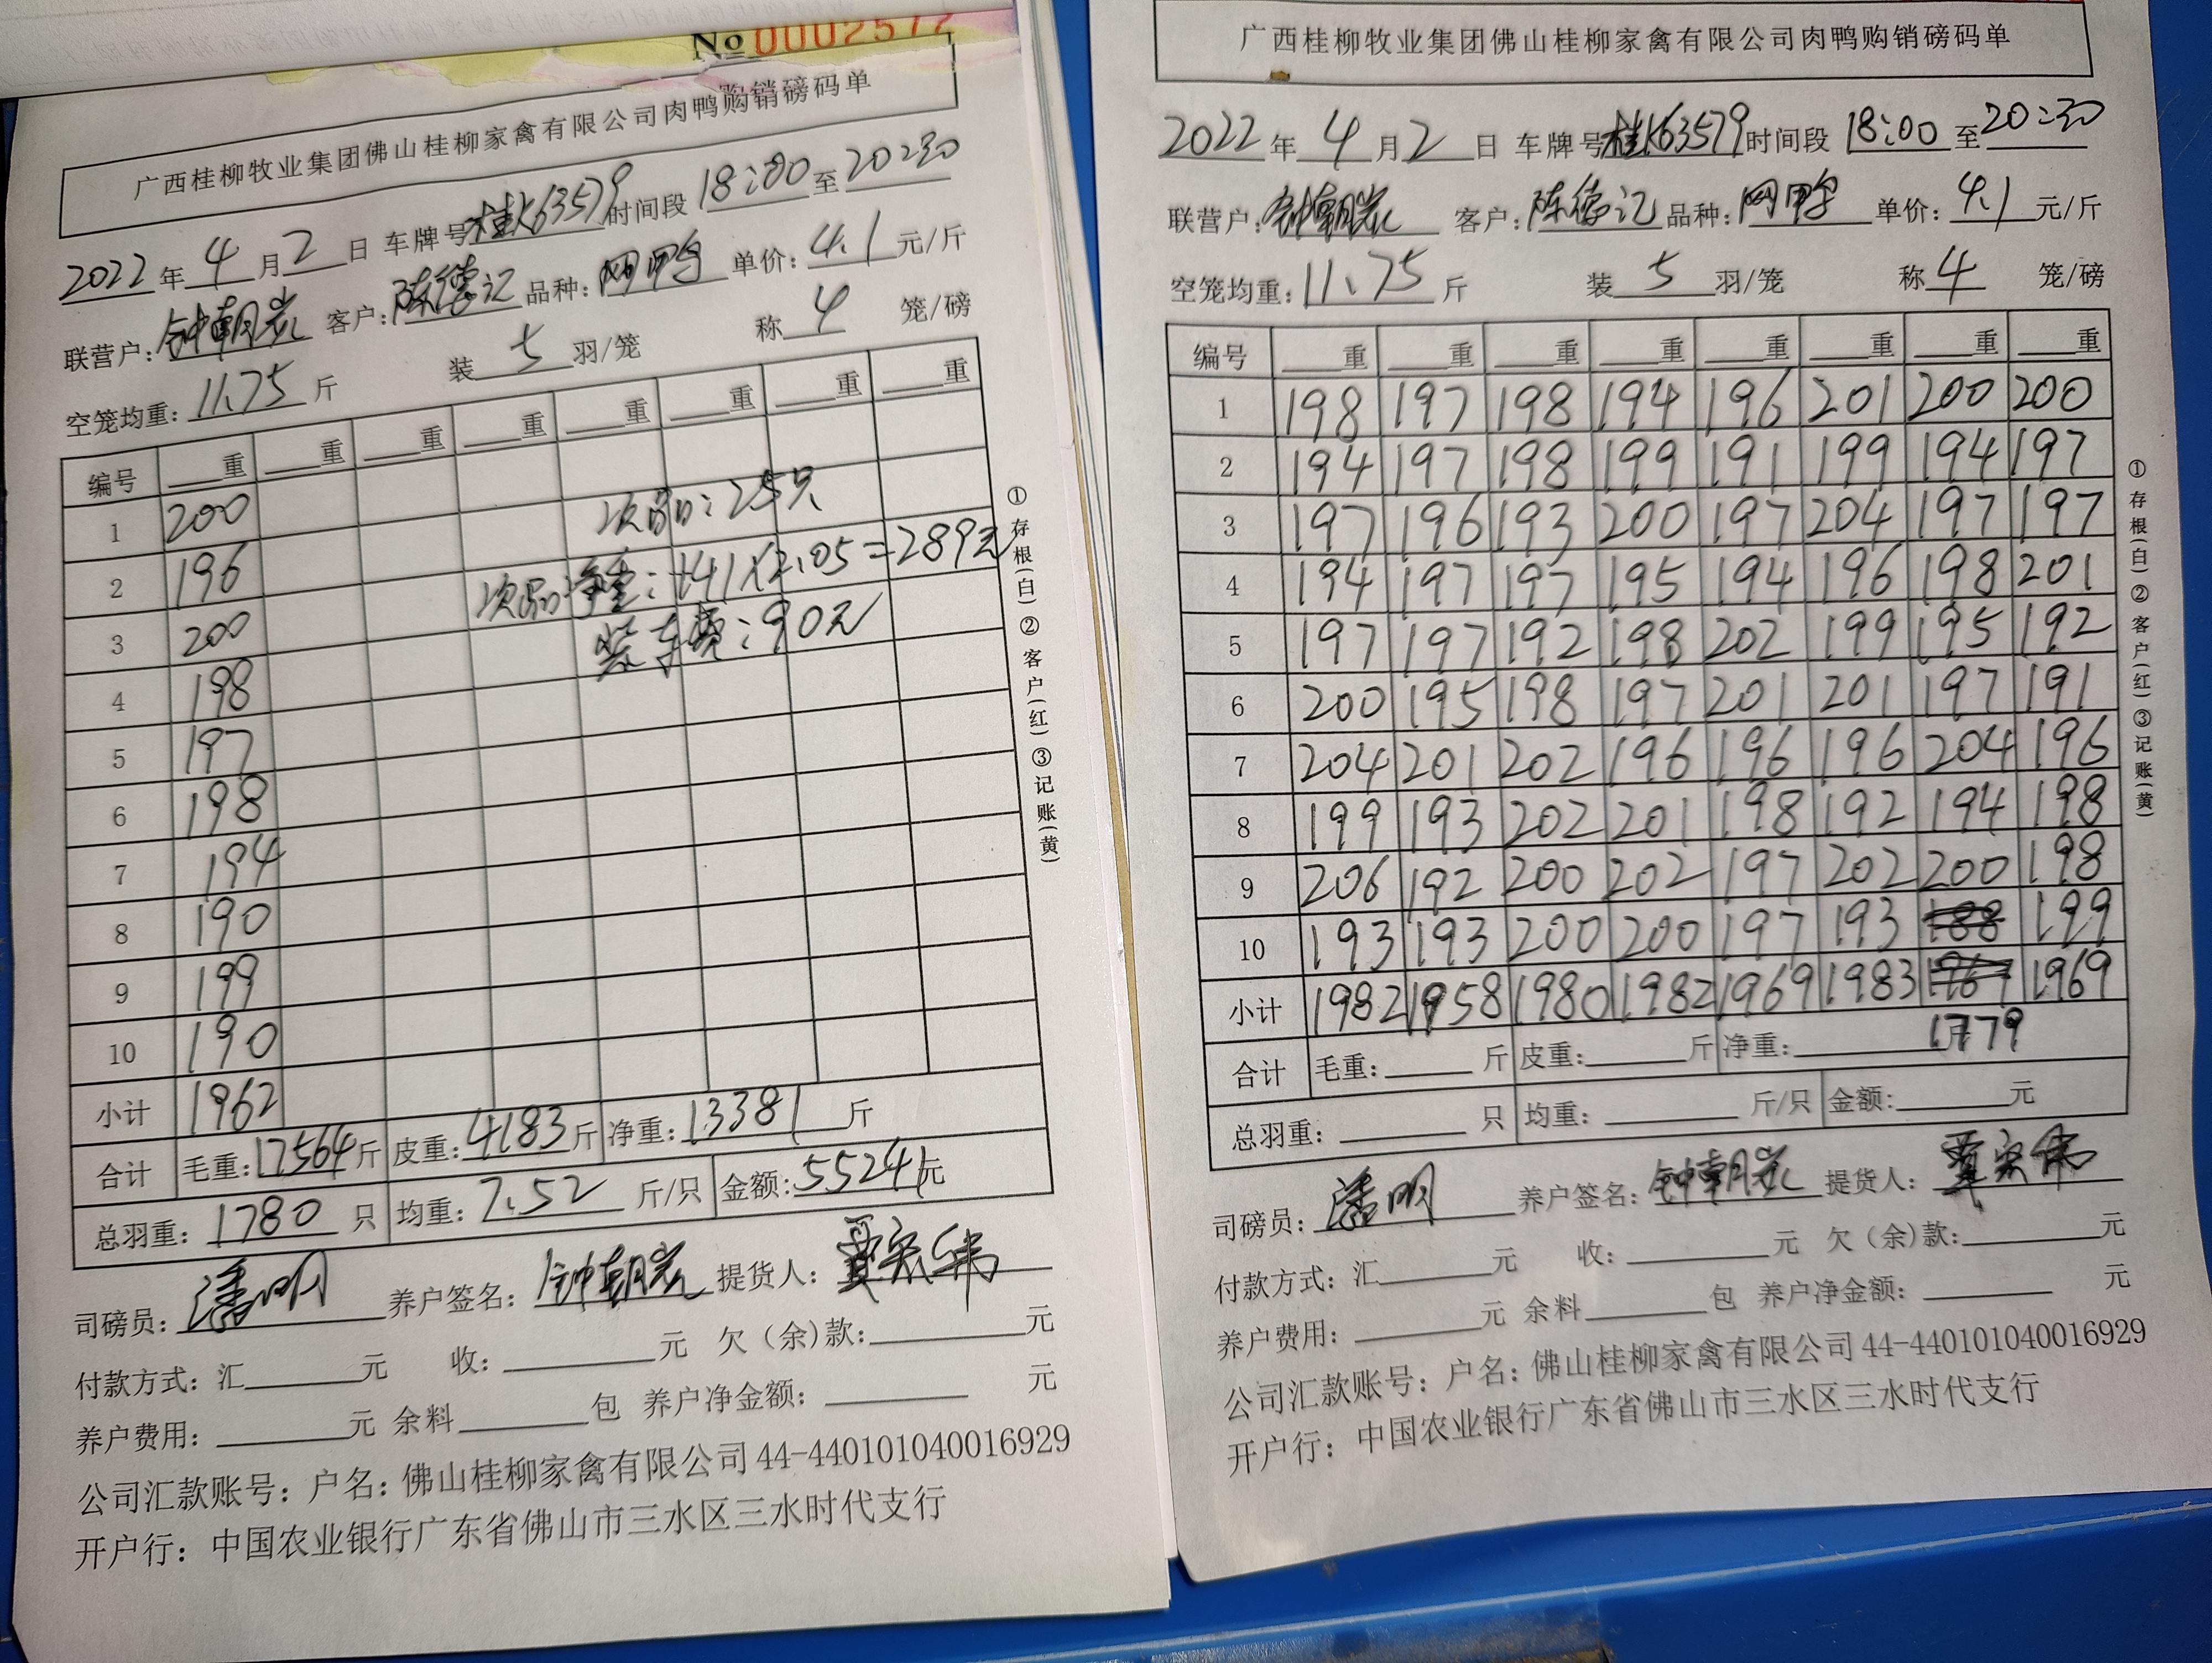 № 0002577
广西桂柳牧业集团佛山桂柳家禽有限公司肉鸭购销磅码单
2022年 4月 2日 车牌号 桂K63579 时间段 18:00 至 20:30
联营户: 钟朝炭 客户: 陈德记 品种: 网鸭 单价: 4.1 元/斤
空笼均重: 11.75 斤 装 5 羽/笼 称 4 笼/磅
编号 重 重 重 重 重 重 重 重
1 200
2 196
3 200
4 198
5 197
6 198
7 194
8 190
9 199
10 190
小计 1962
次品: 25只
次品净重: 141×2.05=289元
装车费: 90元
合计 毛重: 17564 斤 皮重: 4183 斤 净重: 13381 斤
总羽重: 1780 只 均重: 7.52 斤/只 金额: 55241 元
司磅员: 潘明 养户签名: 提货人:
付款方式: 汇 元 收: 元 欠(余)款: 元
养户费用: 元 余料 包 养户净金额: 元
公司汇款账号: 户名: 佛山桂柳家禽有限公司 44-440101040016929
开户行: 中国农业银行广东省佛山市三水区三水时代支行
①存根(白)②客户(红)③记账(黄)
广西桂柳牧业集团佛山桂柳家禽有限公司肉鸭购销磅码单
2022年 4月 2日 车牌号 桂K63579 时间段 18:00 至 20:30
联营户: 客户: 陈德记 品种: 网鸭 单价: 4.1 元/斤
空笼均重: 11.75 斤 装 5 羽/笼 称 4 笼/磅
编号 重 重 重 重 重 重 重 重
1 198 197 198 194 196 201 200 200
2 194 197 198 199 191 199 194 197
3 197 196 193 200 197 204 197 197
4 194 197 197 195 194 196 198 201
5 197 197 192 198 202 199 195 192
6 200 195 198 197 201 201 197 191
7 204 201 202 196 196 196 204 196
8 199 193 202 201 198 192 194 198
9 206 192 200 202 197 202 200 198
10 193 193 200 200 197 193 188 199
小计 1982 1958 1980 1982 1969 1983 1967 1969
1779
合计 毛重: 斤 皮重: 斤 净重: 斤
总羽重: 只 均重: 斤/只 金额: 元
司磅员: 潘明 养户签名: 提货人:
付款方式: 汇 元 收: 元 欠(余)款: 元
养户费用: 元 余料 包 养户净金额: 元
公司汇款账号: 户名: 佛山桂柳家禽有限公司 44-440101040016929
开户行: 中国农业银行广东省佛山市三水区三水时代支行
①存根(白)②客户(红)③记账(黄)